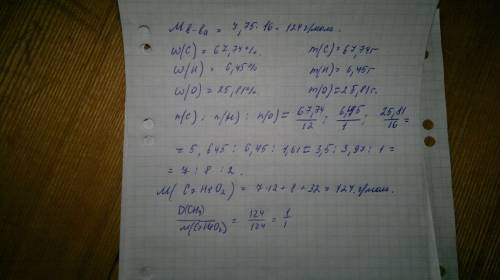 M в-ва = 7,75·16 = 124 г/моль.
w(C) = 67,74%. m(C) = 67,74г
w(H) = 6,45% m(H) = 6,45г
w(O) = 25,81% m(O) = 25,81г.
n(C) : n(H) : n(O) = 67,74/12 : 6,45/1 : 25,81/16 =
= 5,645 : 6,45 : 1,61 = 3,5 : 3,97 : 1 =
= 7 : 8 : 2.
M(C7H8O2) = 7·12 + 8 + 32 = 124 г/моль.
D(CH4)/M(C7H8O2) = 124/124 = 1/1